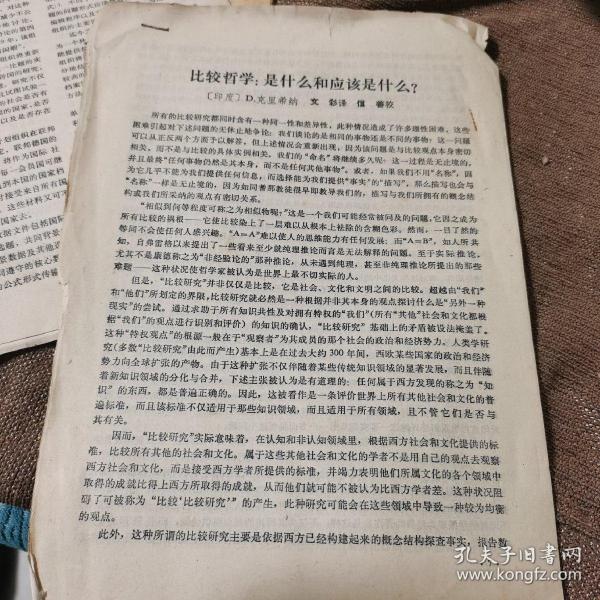 比较哲学:是什么和应该是什么?
〔印度〕D.克里希纳 文 彩译 值 善校
所有的比较研究都同时含有一种同一性和差异性,此种情况造成了许多理性困难,这些
困难引起对下述问题的无休止地争论:我们谈论的是相同的事物还是不同的事物:这一问题
可以从正反两个方面予以解答,但上述情况会重新出现,因为该问题是与比较观点本身密切
相关,而不是与比较的具体实例相关。我们的“命名”将继续多久呢:这一过程是无止境的,
并且最终“任何事物仍然是其本身,而不是任何其他事物”。或者,如果我们不用“名称”,因
为它几乎不能为我们提供任何信息,而选择能为我们提供“事实”的“描写”,那么描写也会与
“名称”一样是无止境的,因为如同普那教徒很早即教导我们的,描写与我们所拥有的概念结
构或我们所采纳的观点有密切关系。
“相似到何等程度可称之为相似物呢:”这是一个我们可能经常被问及的问题,它因之成为
所有比较的祸根——它使比较染上了一层难以从根本上祛除的含糊色彩。然而,一旦了然的
等同不会使任何人感兴趣。“A=A”难以使人的思维能力有任何发展;而“A=B”,如人所共
知,自弗雷格以来提出了一些看来至少就纯理推论而言是无法解释的问题。至于实际推论,
尤其不是康德称之为“非经验论的”那种推论,从未遇到纯理,甚至非纯理推论所提出的那些
难题——这种状况使哲学家被认为是世界上最不切实际的人。
但是,“比较研究”并非仅仅是比较,它是社会、文化和文明之间的比较。超越由“我们”
和“他们”所划定的界限,比较研究就必然是一种根据并非其本身的观点探讨什么是“另外一种
现实”的尝试。通过求助于所有知识共性及对拥有特权的“我们”(所有“其他”社会和文化都根
据“我们”的观点进行识别和评价)的知识的确认,“比较研究”基础上的矛盾被设法掩盖了。
这种“特权观点”的根源一般在于“观察者”为其成员的那个社会的政治和经济势力。人类学研
究(多数“比较研究”由此而产生)基本上是在过去大约300年间,西欧某些国家的政治和经济
势力向全球扩张的产物。由于这种扩张不仅伴随着某些传统知识领域的显著发展,而且伴随
着新知识领域的分化与合并,下述主张被认为是有道理的:任何属于西方发现的称之为“知
识”的东西,都是普遍正确的。因此,这被看作是一条评价世界上所有其他社会和文化的普
遍标准,而且该标准不仅适用于那些知识领域,而且适用于所有领域,且不管它们是否与
其有关。
因而,“比较研究”实际意味着,在认知和非认知领域里,根据西方社会和文化提供的标
准,比较所有其他的社会和文化。属于这些其他社会和文化的学者不是用自己的观点去观察
西方社会和文化,而是接受西方学者所提供的标准,并竭力表明他们所属文化的各个领域中
取得的成就比得上西方所取得的成就,从而他们就可能不被认为比西方学者差。这种状况阻
碍了可被称为“比较‘比较研究’”的产生,此种研究可能会在这些领域中导致一种较为均衡
的观点。
此外,这种所谓的比较研究主要是依据西方已经构建起来的概念结构探查事实,报告数
孔夫子旧书网
www.kongfz.com